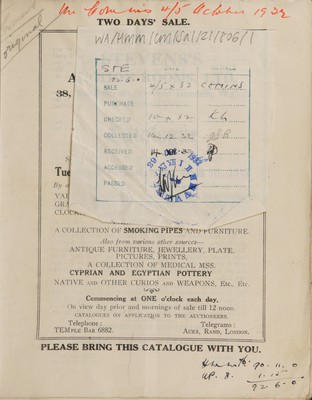 4/5 October 1932
original
TWO DAYS' SALE.
WA/HMM/CM/Sal/21/006/1
STE
92-6-0
SALE 4/5 x 32 COMINS
PURCHASE
CHECKED 10 x 32
COLLECTED 10.12.32
RECEIVED
ACCESSED
PASSED
A
38,
S
Tue
By o
VAL
GRA
CLOCK
A COLLECTION OF SMOKING PIPES AND FURNITURE.
Also from various other sources—
ANTIQUE FURNITURE, JEWELLERY, PLATE,
PICTURES, PRINTS,
A COLLECTION OF MEDICAL MSS.
CYPRIAN AND EGYPTIAN POTTERY
NATIVE AND OTHER CURIOS AND WEAPONS, Etc., Etc.
Commencing at ONE o'clock each day.
On view day prior and mornings of sale till 12 noon.
CATALOGUES ON APPLICATION TO THE AUCTIONEERS.
Telephone :
TEMple Bar 6882.
Telegrams :
Auks, Rand, London.
PLEASE BRING THIS CATALOGUE WITH YOU.
90-11-0
UP. 8. 1-15-
92-6-0